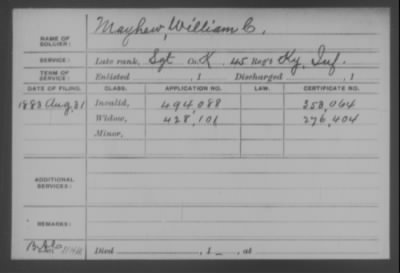 NAME OF SOLDIER: Mayhew, William C.
SERVICE: Late rank, Sgt Co. K, 45 Reg't Ky. Inf.
TERM OF SERVICE: Enlisted , 1 Discharged , 1
DATE OF FILING. CLASS. APPLICATION NO. LAW. CERTIFICATE NO.
1883 Aug. 31 Invalid, 494,088 253,064
Widow, 428,101 276,404
Minor,
ADDITIONAL SERVICES:
REMARKS:
Died , 1 , at